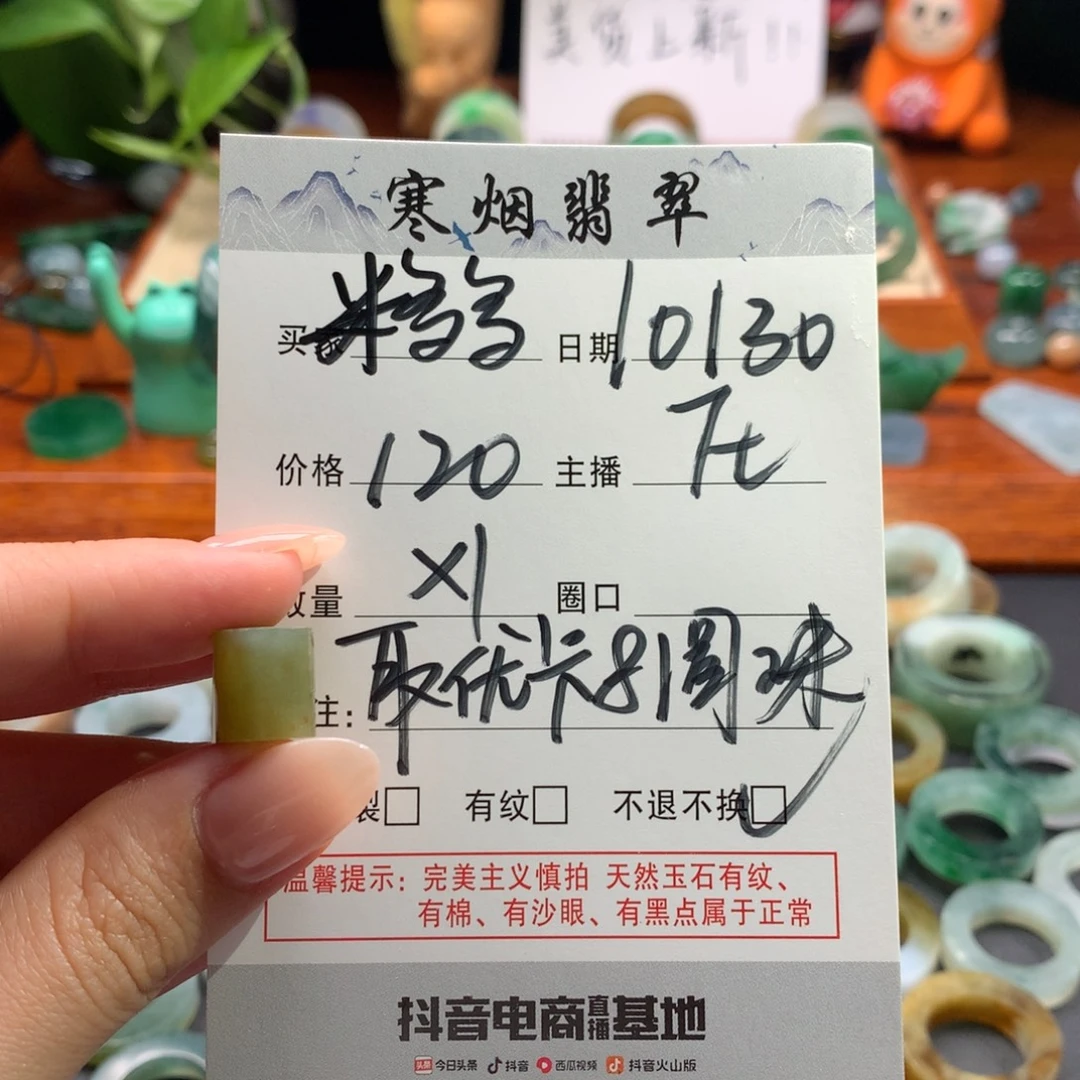 美货上新!!
寒烟翡翠
买 米多多 日期 10130
价格 120 主播 七
数量 X1 圈口
注: 取优卡81圆珠
裂 有纹 不退不换
温馨提示: 完美主义慎拍 天然玉石有纹、
有棉、有沙眼、有黑点属于正常
抖音电商直播基地
头条 今日头条 抖音 西瓜视频 抖音火山版